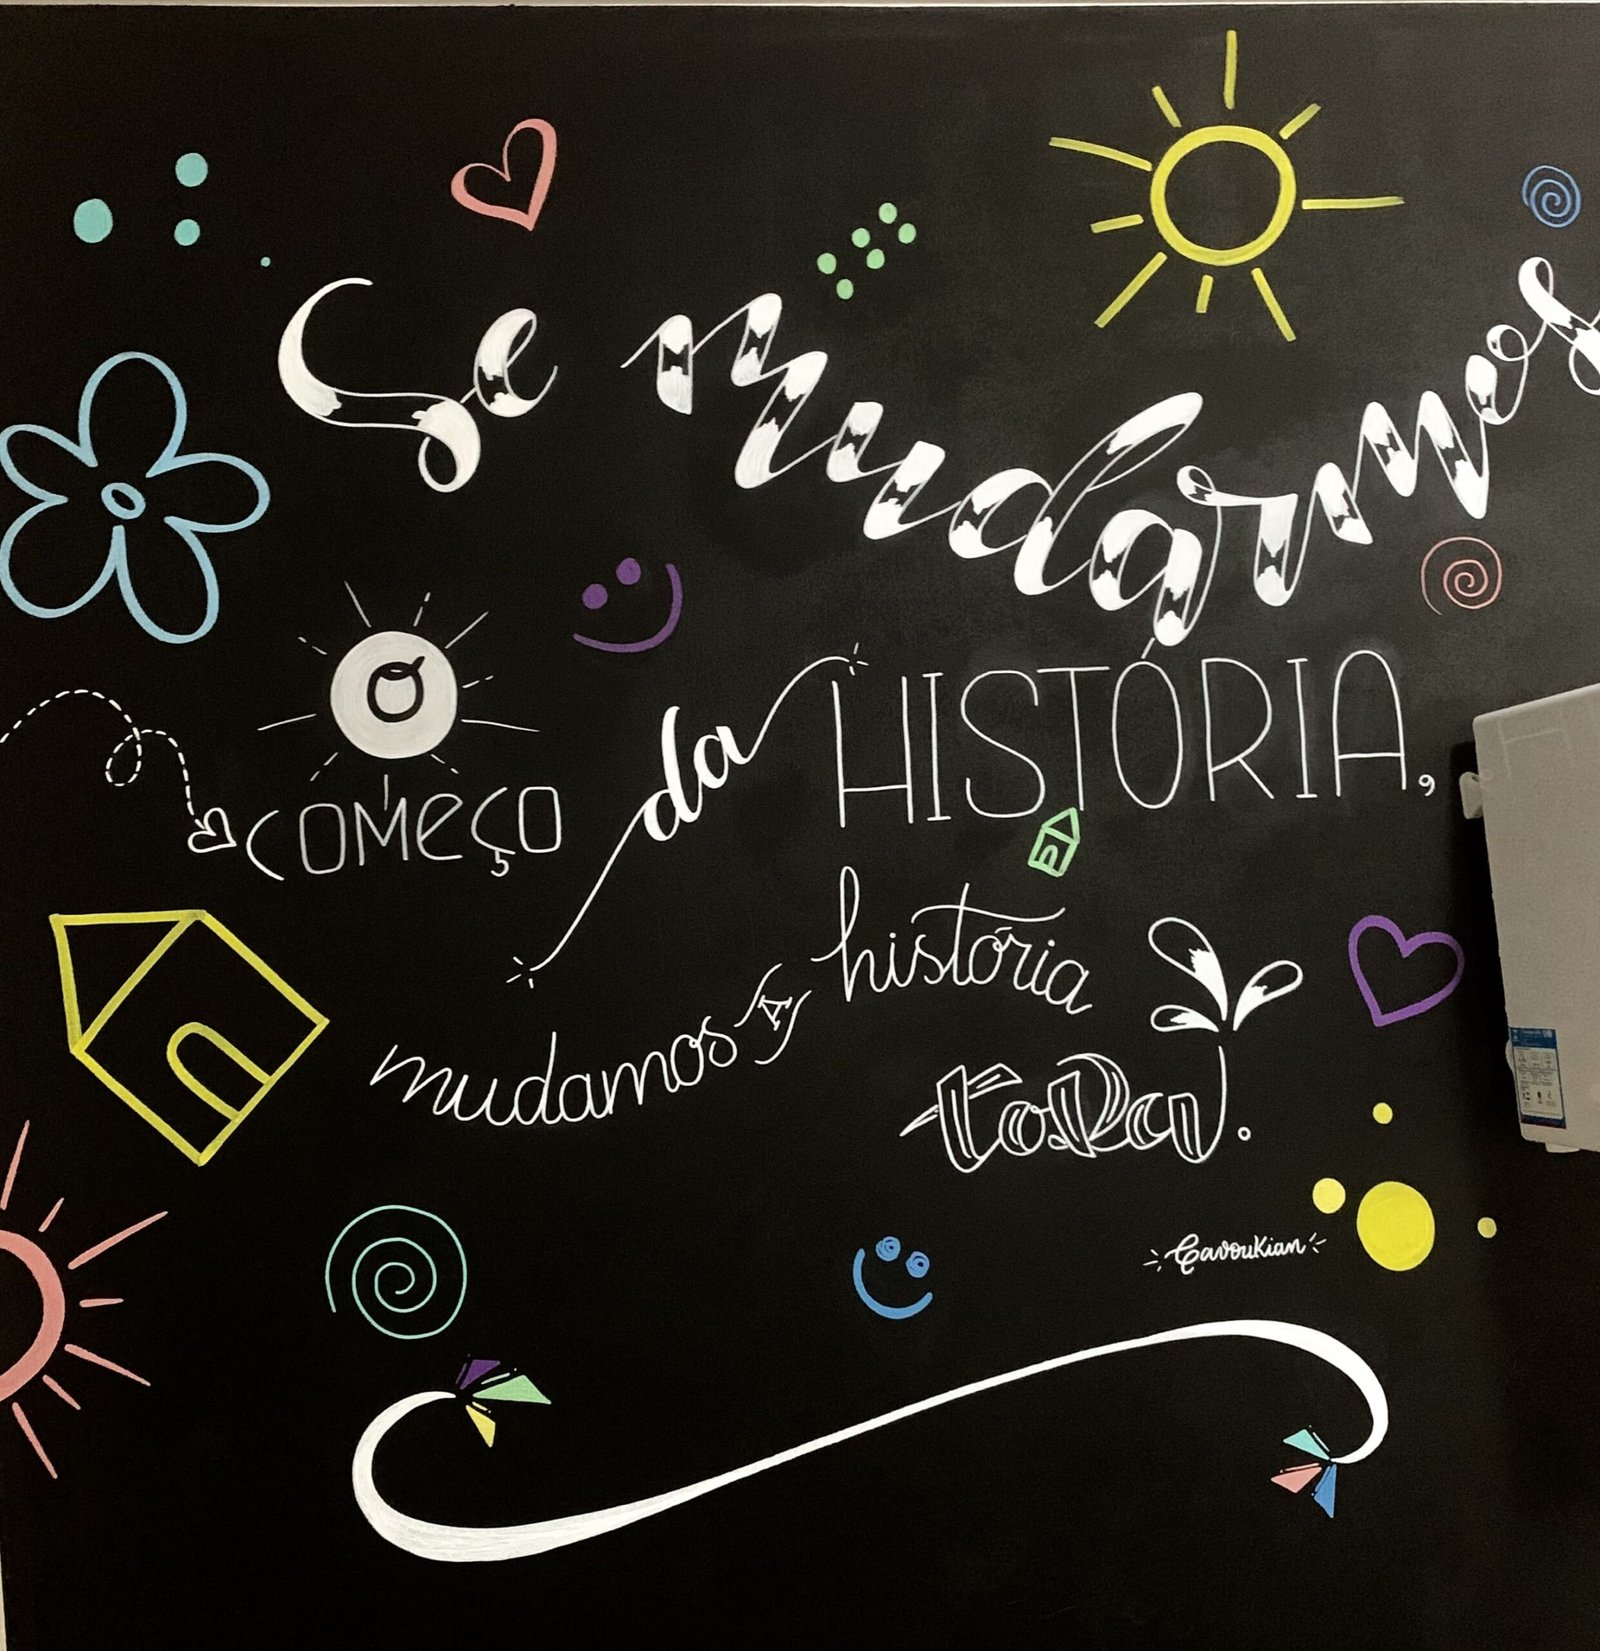 Se mudarmos
o começo da HISTÓRIA,
mudamos A história
toda.
Cavoukian